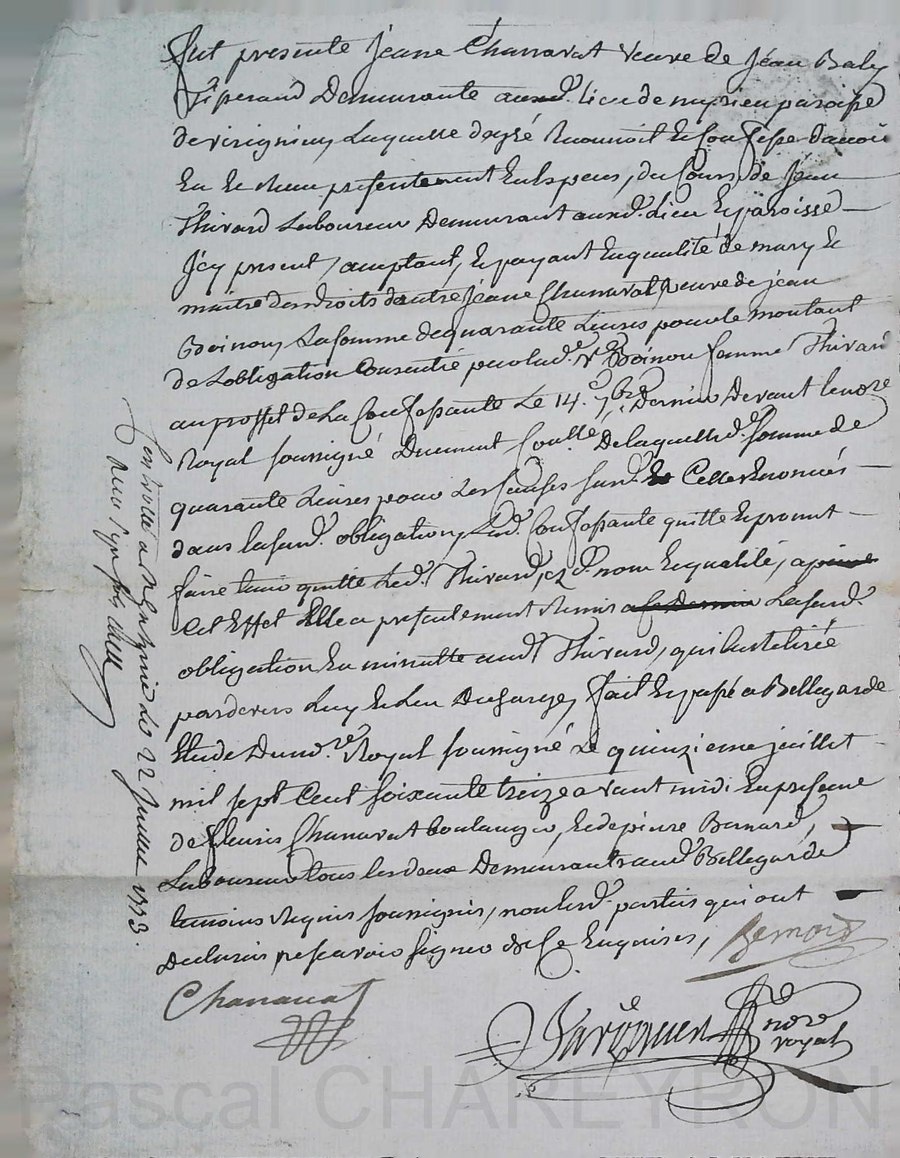 fut presente Jeane Chanavat veuve de Jéan Baly
Demeurante aud. lieu de meyrieu paroisse
de virigneu Laquelle de gré Reconnoit Et Confesse d'avoir
Eu Et Receu présentement En Especes, du Cours, de Jéan
Thivard Laboureur Demeurant auxd. Lieu Et paroisse
Jcy present, acceptant, Et payant En qualité de mary Et
maitre des droits d'autre Jeane Chanavat veuve de jéan
Boinou, La somme de quarante Livres pour le montant
de L'obligation Consentie par lad.e v.e Boinou femme Thivard
au proffit de La Confessante Le 14.e 7bre Dernier Devant Le no.re
Royal soussigné Duement Controllé De laquelle d. somme de
quarante Livres pour Les Causes susd. Et Celles Enoncées
dans La susd. obligation, Lad. Confessante quitte Et promet
faire tenir quitte Led. Thivard, esd. nom Et qualité, a peine
Cet Effet Elle a presentement Remis Lasusd.
obligation En minutte aud. Thivard, qui L'a Retirée
pardevers Luy Et Len Decharge, fait Et passé a Bellegarde
Etude Du no.re Royal soussigné Le quinzieme juillet
mil sept Cent soixante treize avant midi En presence
de fleuris Chanavat boulanger, Et de pierre Bernard,
Laboureur tous Les deux Demeurants aud. Bellegarde
temoins Requis soussignés, non Lesd. parties qui ont
Declarés ne scavoir signer de Ce Enquises,
Bernard
Chanavat
no.re
royal
Controllé a Le 22 Juillet 1773.
Receu
Pascal CHAREYRON